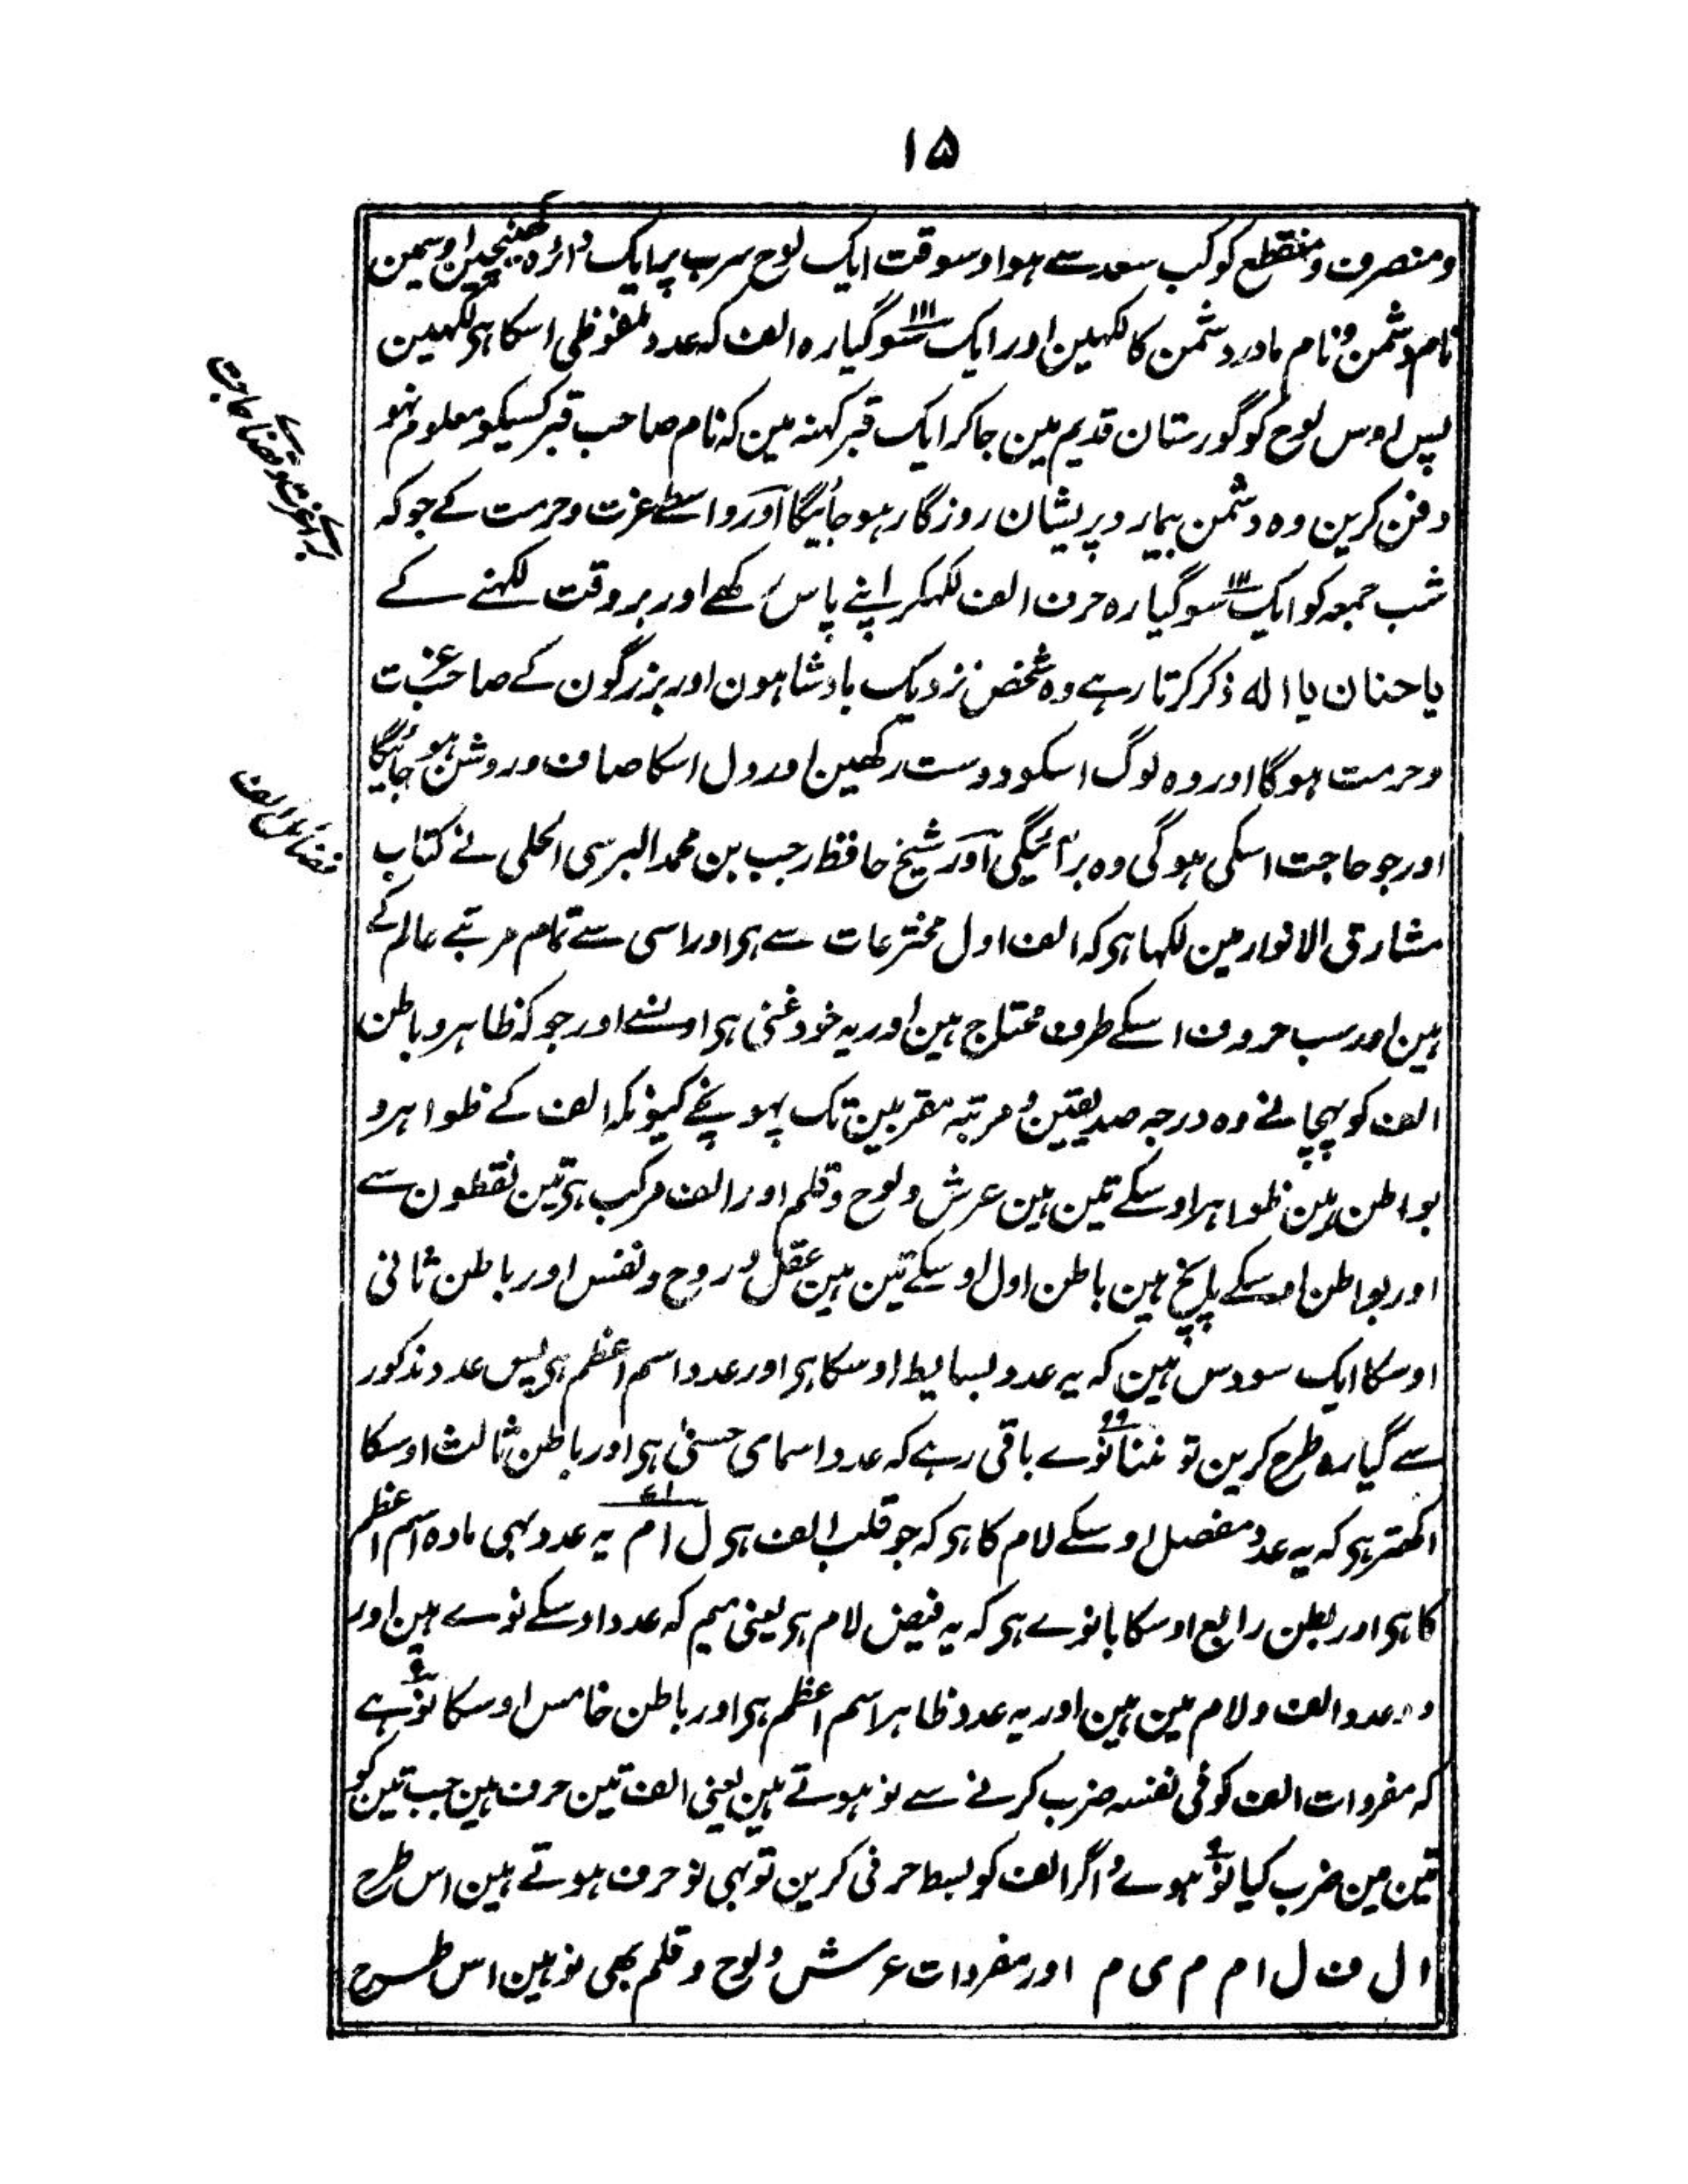 ۱۵
ومنصرف ومنقطع کوکب سعد سے ہو اوسوقت ایک لوح سرب پر ایک دائرہ کھینچین اوسمین
نام دشمن و نام مادر دشمن کا لکہین اور ایک سو گیارہ ۱۱۱ الف کہ عدد ملفوظی اسکا ہی لکہین
پس اوس لوح کو گورستان قدیم مین جاکر ایک قبر کہنہ مین کہ نام صاحب قبر کسیکو معلوم نہو
دفن کرین وہ دشمن بیمار و پریشان روزگار ہو جائیگا اور واسطے عزت و حرمت کے جو کہ
برائے عزت و قضائے حاجت
شب جمعہ کو ایک سو گیارہ ۱۱۱ حرف الف لکہکر اپنے پاس رکھے اور بروقت لکہنے کے
یا حنان یا الہ ذکر کرتا رہے وہ شخص نزدیک بادشاہون اور بزرگون کے صاحب عزت
وحرمت ہوگا اور وہ لوگ اسکو دوست رکھین اور دل اسکا صاف و روشن ہو جائیگا
اور جو حاجت اسکی ہوگی وہ برآئیگی اور شیخ حافظ رجب بن محمد البرسی الحلی نے کتاب
فضائل الف
مشارق الانوار مین لکہا ہی کہ الف اول مخترعات سے ہی اور اسی سے تمام مرتبے عالم کے
ہین اور سب حروف اسکے طرف محتاج ہین اور یہ خود غنی ہی اونسے اور جو کہ ظاہر و باطن
الف کو پہچانے وہ درجہ صدیقین و مرتبہ مقربین تک پہونچے کیونکہ الف کے ظواہر و
بواطن ہین ظواہر اوسکے تین ہین عرش و لوح و قلم اور الف مرکب ہی تین نقطون سے
اور بواطن اوسکے پانچ ہین باطن اول اوسکے تین ہین عقل و روح و نفس اور باطن ثانی
اوسکا ایک سو دس ہین کہ یہ عدد بسایط اوسکا ہی اور عدد اسم اعظم ہی پس عدد مذکور
سے گیارہ طرح کرین تو ننانوے ۹۹ باقی رہے کہ عدد اسمای حسنیٰ ہی اور باطن ثالث اوسکا
اکھتر ہی کہ یہ عدد مفصل اوسکے لام کا ہی کہ جو قلب الف ہی ل ا م ۷۱ یہ عدد بہی مادہ اسم اعظم
کا ہی اور بطن رابع اوسکا بانوے ہی کہ یہ فیض لام ہی یعنی میم کہ عدد اوسکے نوے ہین اور
دو عدد الف و لام مین ہین اور یہ عدد ظاہر اسم اعظم ہی اور باطن خامس اوسکا نو ۹ ہے
کہ مفردات الف کو فی نفسہ ضرب کرنے سے نو ہوتے ہین یعنی الف تین حرف ہین جب تین کو
تین مین ضرب کیا نو ۹ ہوے و اگر الف کو بسط حرفی کرین تو بہی نو حرف ہوتے ہین اس طرح
ا ل ف ل ا م م ی م اور مفردات عرش و لوح و قلم بھی نو ہین اس طرح